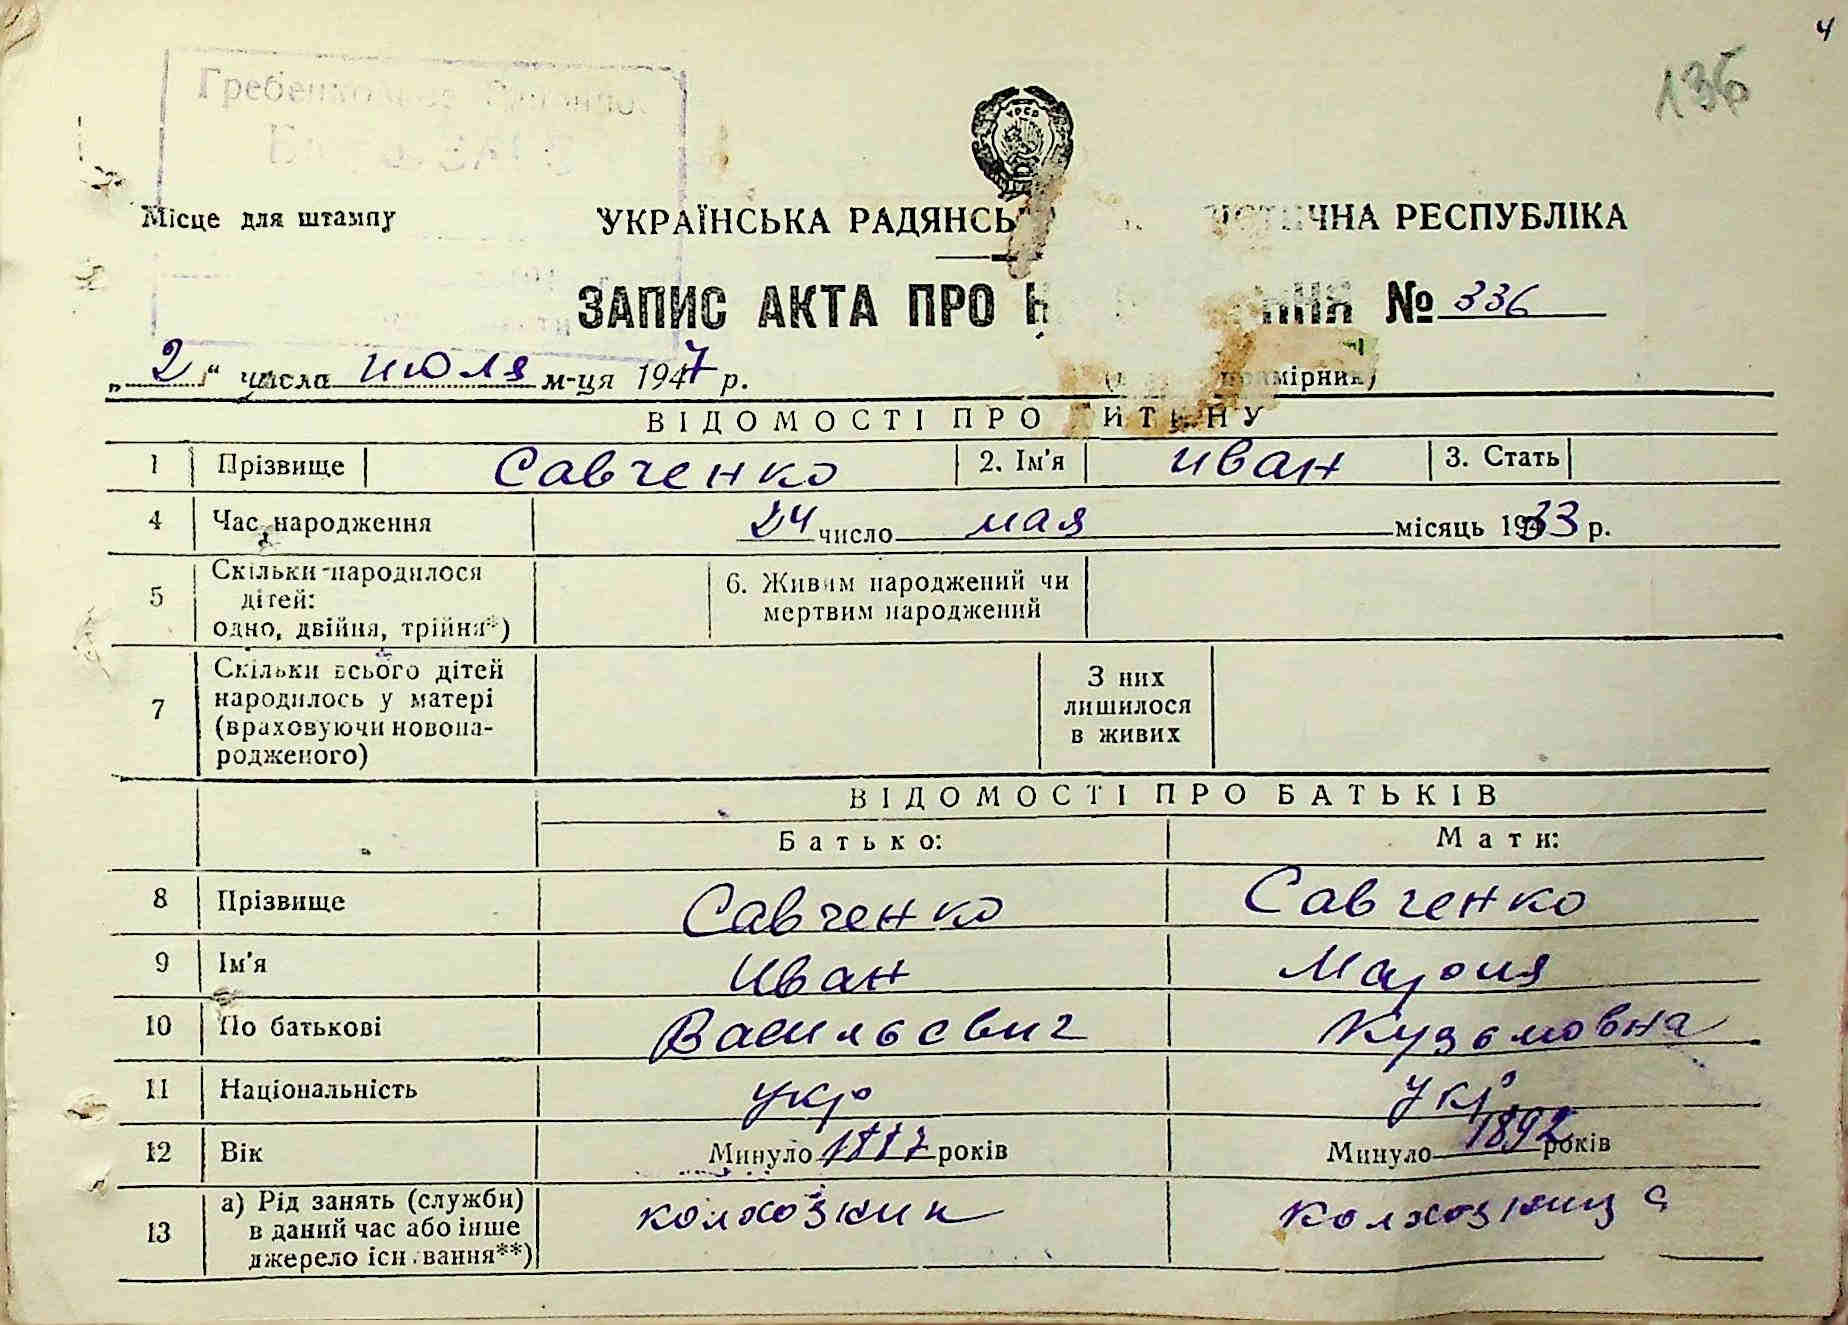 4
136
Гребенко
УРСР
Місце для штампу
УКРАЇНСЬКА РАДЯНСЬ ЧНА РЕСПУБЛІКА
ЗАПИС АКТА ПРО Н ННЯ № 336
„2“ числа июля м-ця 1947 р.
примірник)
ВІДОМОСТІ ПРО ДИТИНУ
1 Прізвище Савченко 2. Ім'я Иван 3. Стать
4 Час народження 24 число мая місяць 1933 р.
5 Скільки народилося дітей: одно, двійня, трійня*) 6. Живим народжений чи мертвим народжений
7 Скільки всього дітей народилось у матері (враховуючи новонародженого) З них лишилося в живих
ВІДОМОСТІ ПРО БАТЬКІВ
Батько: Мати:
8 Прізвище Савченко Савченко
9 Ім'я Иван Мария
10 По батькові Васильевич Кузьмовна
11 Національність укр укр
12 Вік Минуло 1887 років Минуло 1892 років
13 а) Рід занять (служби) в даний час або інше джерело існування**) колхозник колхозница